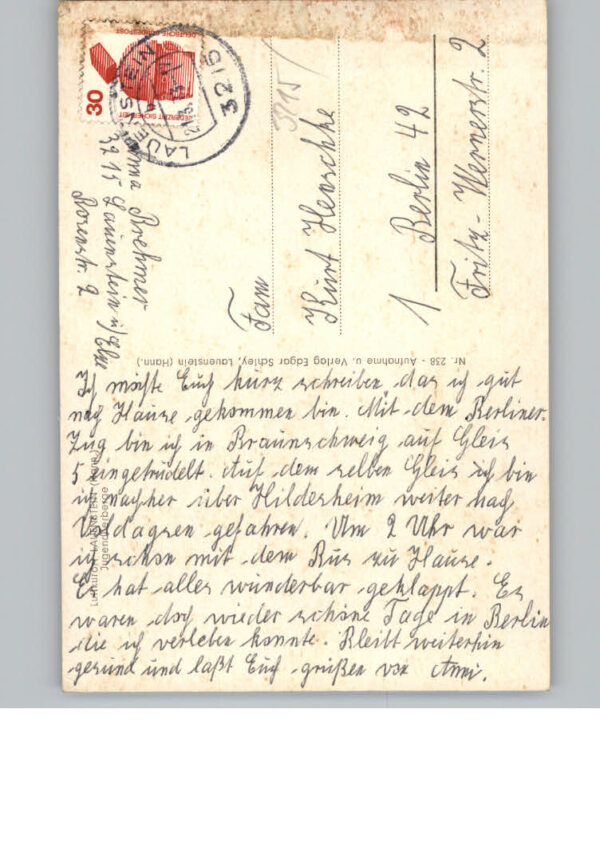 30
DEUTSCHE BUNDESPOST
JEDERZEIT SICHERHEIT
LAUENSTEIN
3215
3215
Brehmer
3215 Lauenstein ü/Elze
Rosenstr. 2
Fam
Kurt Henschke
1 Berlin 42
Fritz-Wernerstr. 2
Nr. 238 - Aufnahme u. Verlag Edgar Schley, Lauenstein (Hann.)
Luftkurort LAUENSTEIN (Hann.)
Jugendherberge
Ich möchte Euch kurz schreiben das ich gut
nach Hause gekommen bin. Mit dem Berliner-
Zug bin ich in Braunschweig auf Gleis
5 eingetrudelt. Auf dem selben Gleis ich bin
ich nachher über Hildesheim weiter nach
Voldagsen gefahren. Um 2 Uhr war
ich schon mit dem Bus zu Hause.
Es hat alles wunderbar geklappt. Es
waren doch wieder schöne Tage in Berlin
die ich verleben konnte. Bleibt weiterhin
gesund und laßt Euch grüßen von Anni.